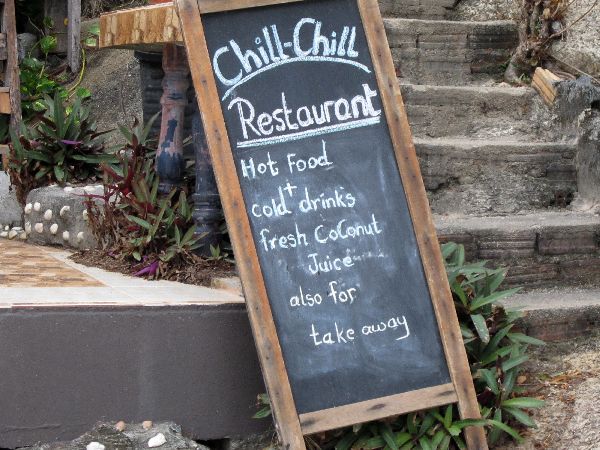 Chill-Chill
Restaurant
Hot Food
+
cold drinks
fresh CoConut
Juice
also for
take away